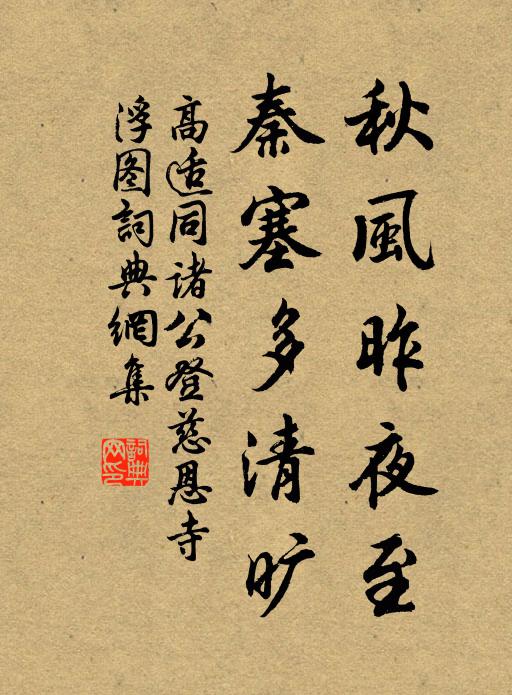 秋風昨夜至
秦塞多清旷
高适同诸公登慈恩寺
浮图詞典網集
詞典网印